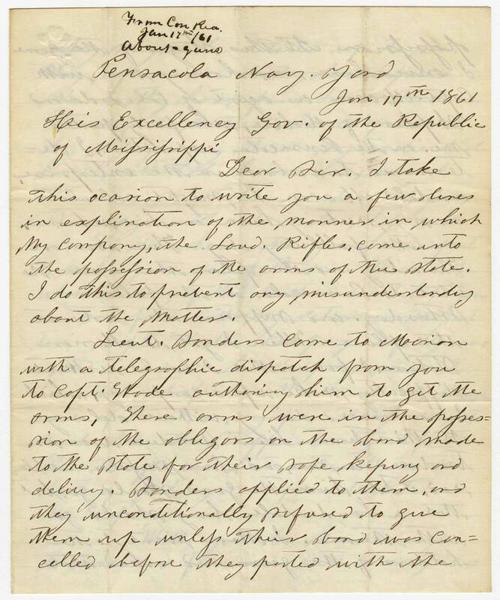 From Con Rea.
Jan 17th/61
About guns
Pensacola Nav. Yard
Jan 17th 1861
His Excellency Gov. of the Republic
of Mississippi
Dear Sir. I take
this ocasion to write you a few lines
in explination of the manner in which
My Company, the Laud. Rifles, came into
the possession of the arms of the State.
I do this to prevent any misunderstanding
about the matter.
Lieut. Sanders came to Marion
with a telegraphic dispatch from you
to Capt. Wade authorising them to get the
arms, These arms were in the posses=
sion of the obligors on the bond made
to the State for their safe keeping and
delivery. Sanders applied to them, and
they unconditionally refused to give
them up unless their bond was can=
celled before they parted with the